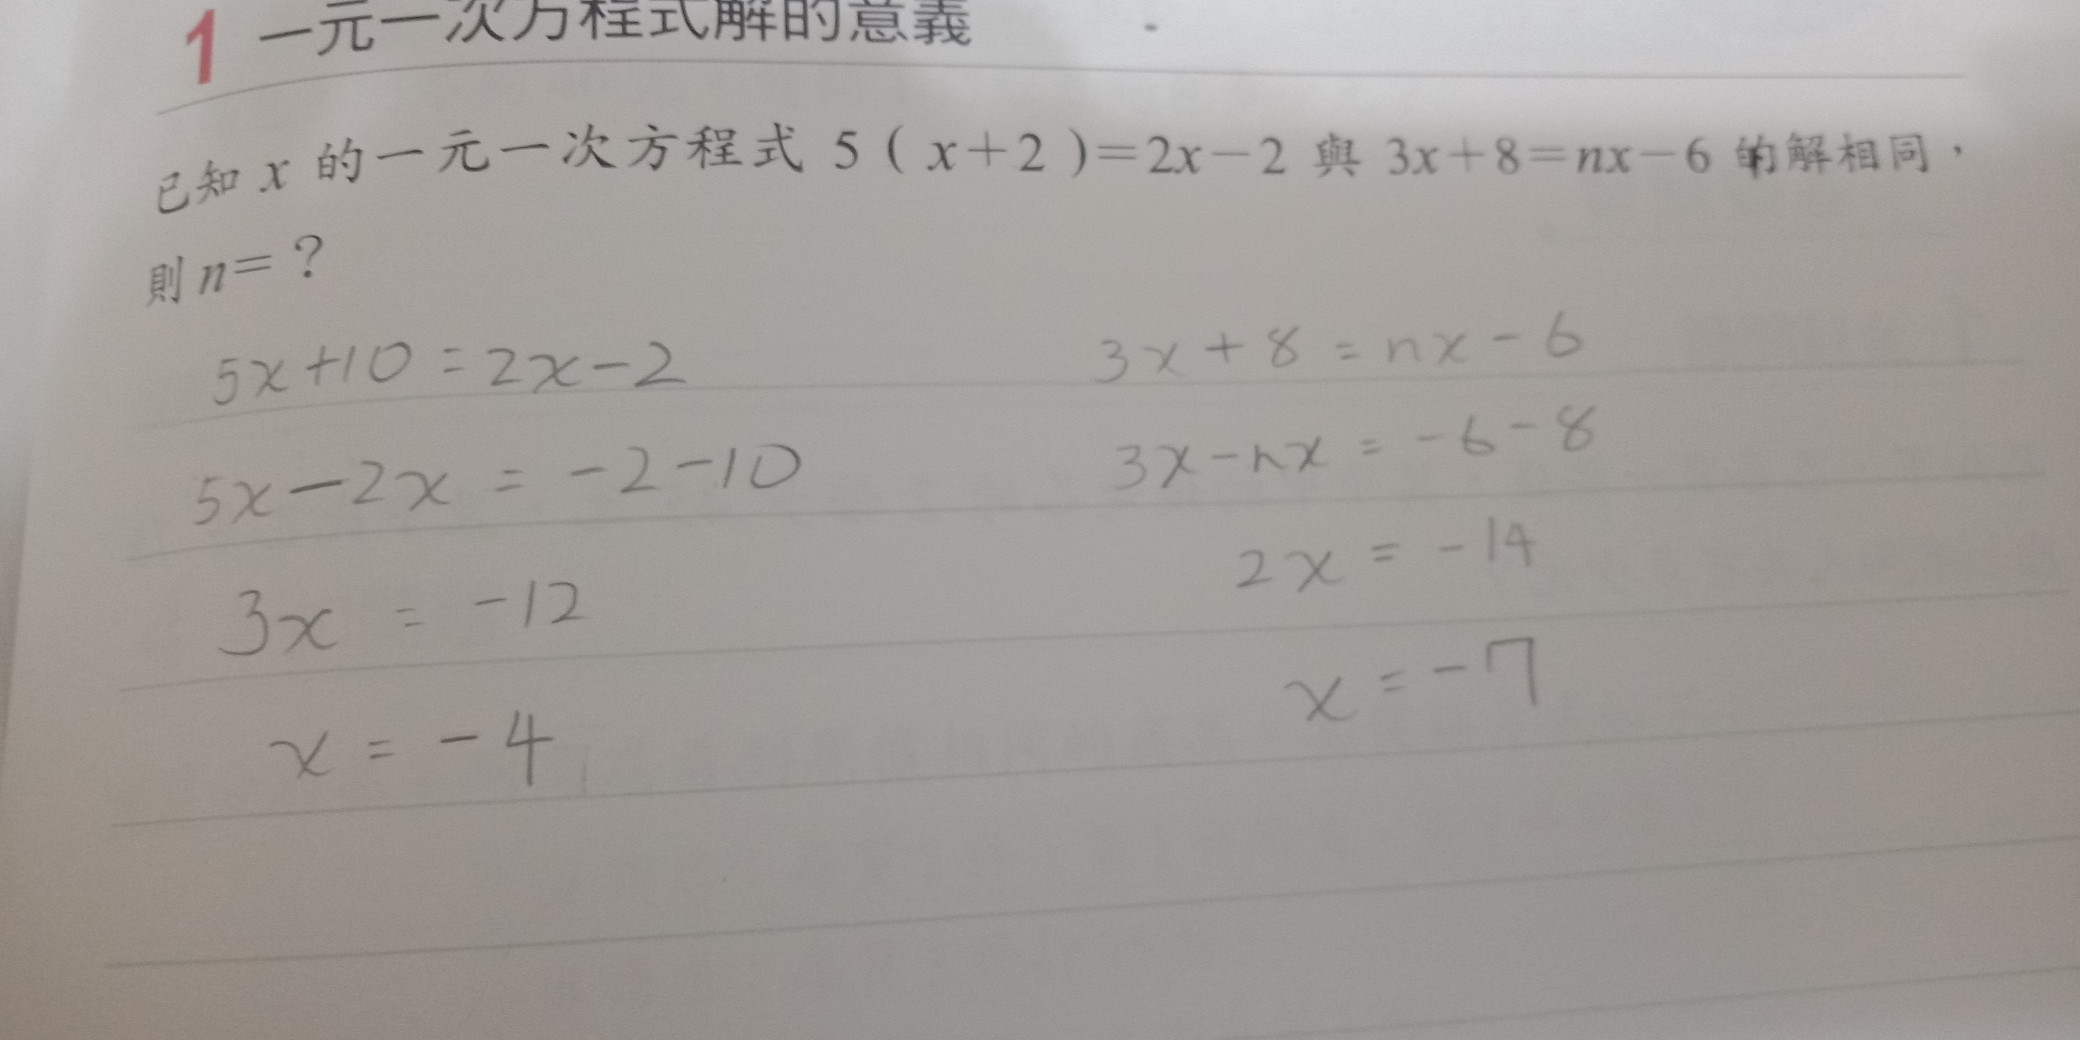 1 一元一次方程式解的意義
已知 x 的一元一次方程式 5(x+2)=2x-2 與 3x+8=nx-6 的解相同,
則 n=?
5x+10=2x-2
5x-2x=-2-10
3x=-12
x=-4
3x+8=nx-6
3x-nx=-6-8
2x=-14
x=-7